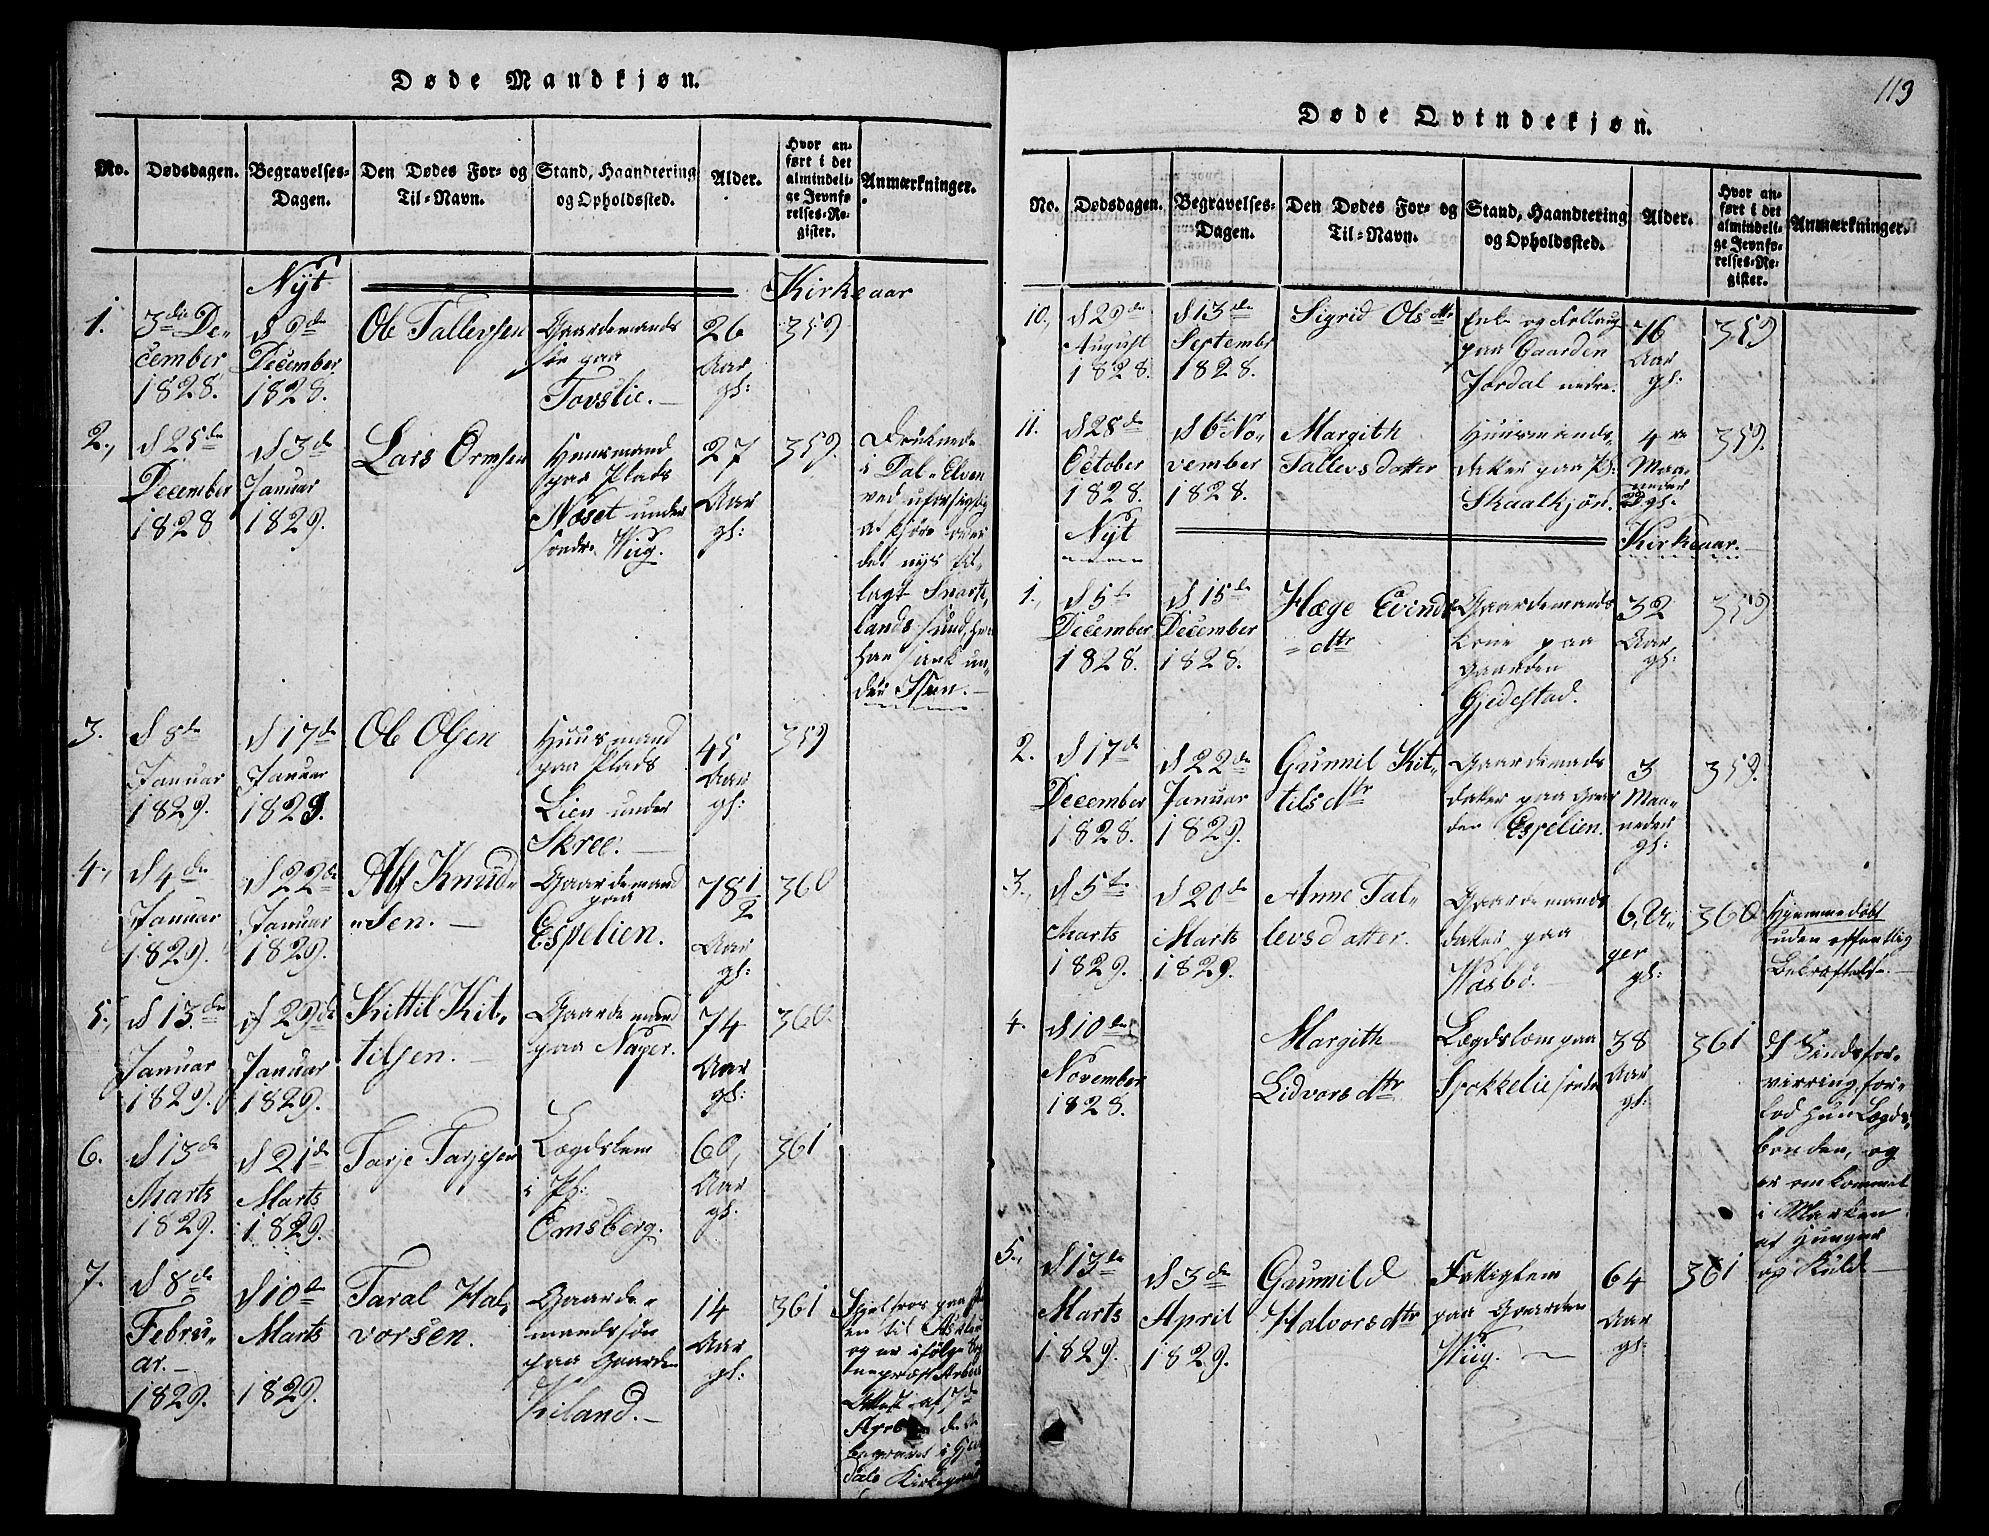 Døde Mandkjøn.
No.
Dødsdagen.
Begravelses-
Dagen.
Den Dødes For- og
Til-Navn.
Stand, Haandtering
og Opholdssted.
Alder.
Hvor an-
ført i det
almindeli-
ge Jevnfø-
relses-Re-
gister.
Anmærkninger.
Nyt
Kirkeaar
1.
3die De-
cember
1828.
d 9de
December
1828.
Ole Tallevsen
Gaardemands
søn paa
Tovslie.
26
Aar
gl:
359
2.,
d 25de
December
1828
d 3de
Januar
1829.
Lars Ormsen
Huusmand
paa Plads
Nøset under
søndr. Viig.
27
Aar
gl:
359.
Druknede
i Dal-Elven
ved uforsigtig
at kjøre over
det nys til-
lagt
lands Sund,
han sank un-
der Isen.
3.
d 8de
Januar
1829.
d 17de
Januar
1829.
Ole Olsen
Huusmand
paa Plads
Lien under
Skree.
45
Aar
gl:
359
4.,
d 4de
Januar
1829.
d 22de
Januar
1829.
Alf Knud-
sen.
Gaardemand
paa
Espelien.
78 1/2
Aar
gl:
360
5.,
d 13de
Januar
1829.
d 29de
Januar
1829.
Kittil Kit-
tilsen.
Gaardemand
paa
74
Aar
gl:
360.
6.
d 13de
Marts
1829.
d 21de
Marts
1829.
Tarje Tarjesen
Lægdslem
i Pl:
Emsberg.
60,
Aar
gl.
361
7.
d 8de
Febru-
ar.
1829.
d 10de
Marts
1829.
Taral Hal-
vorsen.
Gaarde-
mandssøn
paa Gaarden
Kiland.
14
Aar
gl:
361
Ihjelfros paa
en til
og er ifølge
Attest af 7de
April
begravet i
Kirkegaard
113
Døde Qvindekjøn.
No.
Dødsdagen.
Begravelses-
Dagen.
Den Dødes For- og
Til-Navn.
Stand, Haandtering
og Opholdssted.
Alder.
Hvor an-
ført i det
almindeli-
ge Jevnfø-
relses-Re-
gister.
Anmærkninger.
10.,
d 29de
August
1828.
d 13de
Septembr
1828.
Sigrid Olsdtr
Enke og
paa Gaarden
Jordal nedre.
76
Aar
gl:
359
11.
d 28de
October
1828.
d 6te No-
vember
1828.
Margith
Tallevsdatter
Huusmands-
datter paa Pl:
Skaalkjøn.
4re
Maa-
neder
gl:
359.
Nyt
Kirkeaar.
1.,
d 5te
December
1828.
d 15de
December
1828.
Hæge Evinds
dtr
Gaardemands
kone paa
Gaarden
Gjedestad.
32
Aar
gl:
359
2.
d 17de
December
1828.
d 22de
Januar
1829.
Gunnil Kit-
tilsdtr
Gaardemands
datter paa Gaar
den Espelien.
3
Maa-
neder
gl:
359.
3.,
d 5te
Marts
1829.
d 20de
Marts
1829.
Anne Tal-
levsdatter.
Gaardemands
datter paa
Vasbø.
6, U-
ger
gl:
360
Hjemmedøbt
uden offentlig
Bekræftelse.
4.
d 10de
November
1828.
Margith
Lidvorsdtr
Lægdslem paa
Sjokkelie søndr
38
Aar
gl:
361
Af Sindsfor-
virring for-
lod hun Lægds-
bonden, og
er omkommet
i Marken
af Hunger
og Kuld
5.,
d 13de
Marts
1829.
d 3de
April
1829.
Gunnild
Halvorsdtr
Fattiglem
paa Gaarden
Viig.
64
Aar
gl:
361